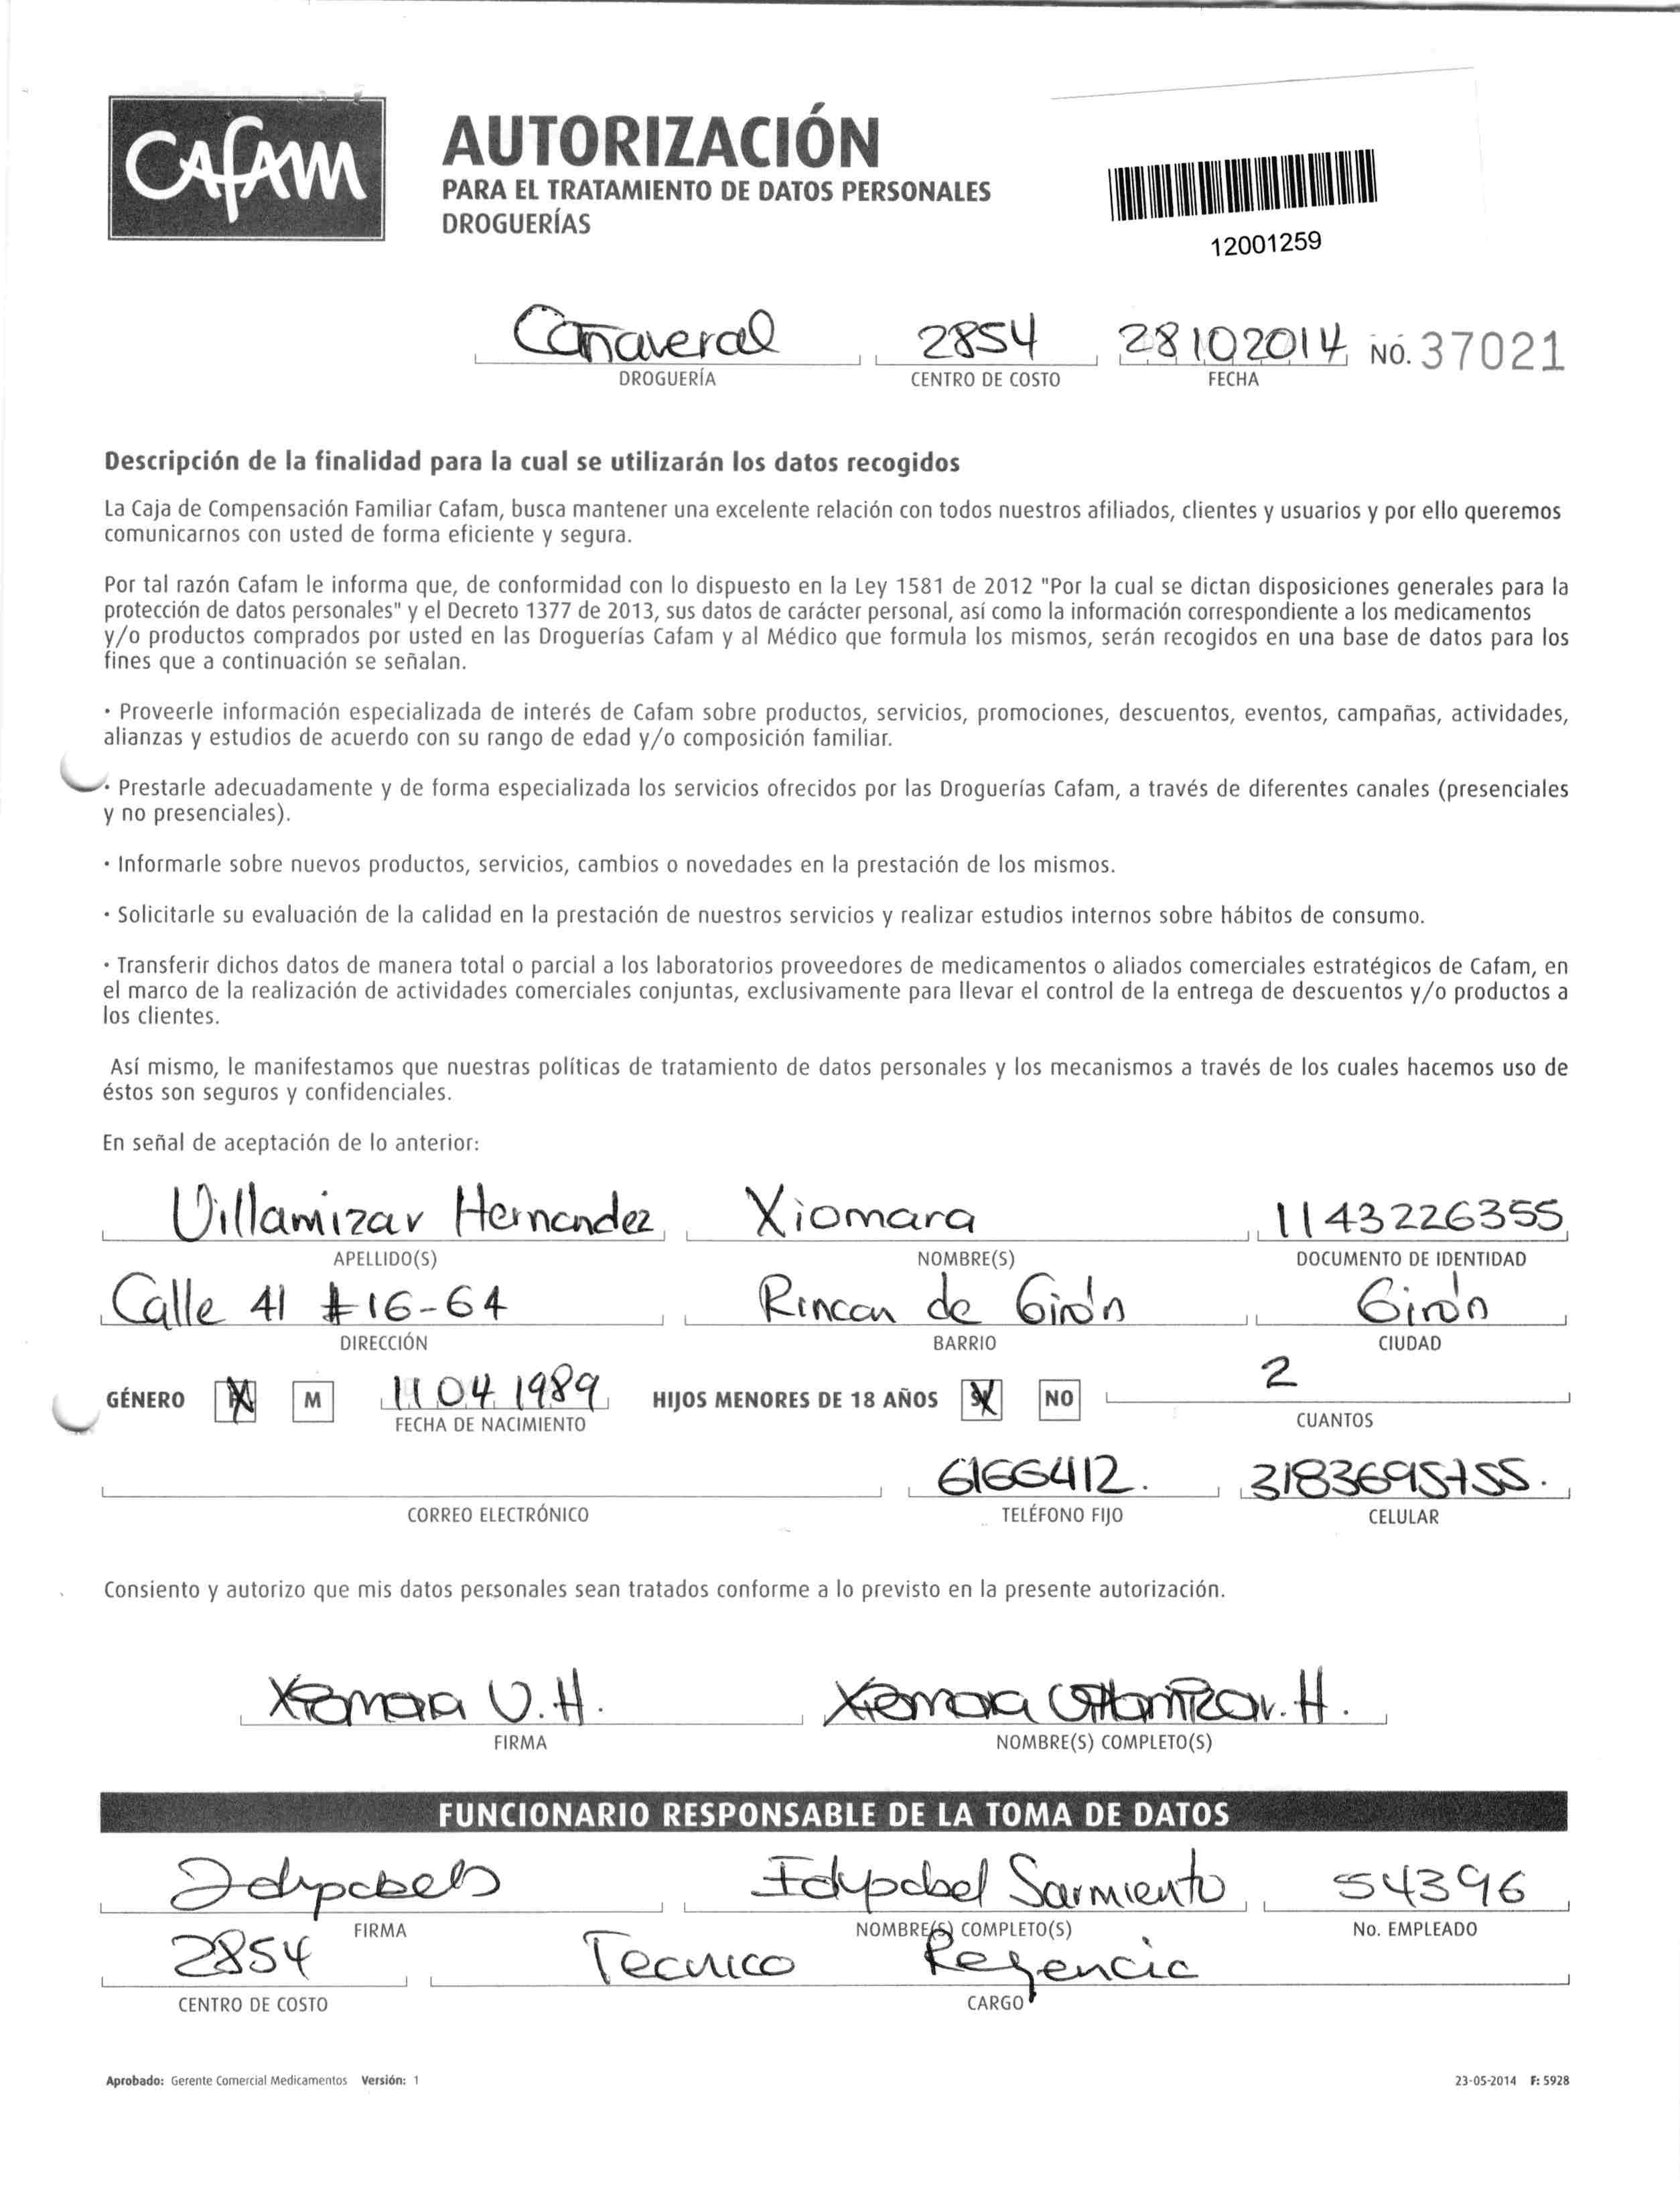 Cafam
AUTORIZACIÓN
PARA EL TRATAMIENTO DE DATOS PERSONALES
DROGUERÍAS
12001259
Cañaveral 2854 28102014 NO. 37021
DROGUERÍA CENTRO DE COSTO FECHA
Descripción de la finalidad para la cual se utilizarán los datos recogidos
La Caja de Compensación Familiar Cafam, busca mantener una excelente relación con todos nuestros afiliados, clientes y usuarios y por ello queremos
comunicarnos con usted de forma eficiente y segura.
Por tal razón Cafam le informa que, de conformidad con lo dispuesto en la Ley 1581 de 2012 "Por la cual se dictan disposiciones generales para la
protección de datos personales" y el Decreto 1377 de 2013, sus datos de carácter personal, así como la información correspondiente a los medicamentos
y/o productos comprados por usted en las Droguerías Cafam y al Médico que formula los mismos, serán recogidos en una base de datos para los
fines que a continuación se señalan.
· Proveerle información especializada de interés de Cafam sobre productos, servicios, promociones, descuentos, eventos, campañas, actividades,
alianzas y estudios de acuerdo con su rango de edad y/o composición familiar.
· Prestarle adecuadamente y de forma especializada los servicios ofrecidos por las Droguerías Cafam, a través de diferentes canales (presenciales
y no presenciales).
· Informarle sobre nuevos productos, servicios, cambios o novedades en la prestación de los mismos.
· Solicitarle su evaluación de la calidad en la prestación de nuestros servicios y realizar estudios internos sobre hábitos de consumo.
· Transferir dichos datos de manera total o parcial a los laboratorios proveedores de medicamentos o aliados comerciales estratégicos de Cafam, en
el marco de la realización de actividades comerciales conjuntas, exclusivamente para llevar el control de la entrega de descuentos y/o productos a
los clientes.
Así mismo, le manifestamos que nuestras políticas de tratamiento de datos personales y los mecanismos a través de los cuales hacemos uso de
éstos son seguros y confidenciales.
En señal de aceptación de lo anterior:
Villamizar Hernandez Xiomara 1143226355
APELLIDO(S) NOMBRE(S) DOCUMENTO DE IDENTIDAD
Calle 41 #16-64 Rincon de Girón Girón
DIRECCIÓN BARRIO CIUDAD
GÉNERO M 11 04 1989 HIJOS MENORES DE 18 AÑOS NO 2
FECHA DE NACIMIENTO CUANTOS
6166412. 
CORREO ELECTRÓNICO TELÉFONO FIJO CELULAR
Consiento y autorizo que mis datos personales sean tratados conforme a lo previsto en la presente autorización.
Xiomara V.H. Xiomara Villamizar.H.
FIRMA NOMBRE(S) COMPLETO(S)
FUNCIONARIO RESPONSABLE DE LA TOMA DE DATOS
Sarmiento 54396
FIRMA NOMBRE(S) COMPLETO(S) No. EMPLEADO
2854 Tecnico Regencia
CENTRO DE COSTO CARGO
Aprobado: Gerente Comercial Medicamentos Versión: 1 23-05-2014 F: 5928